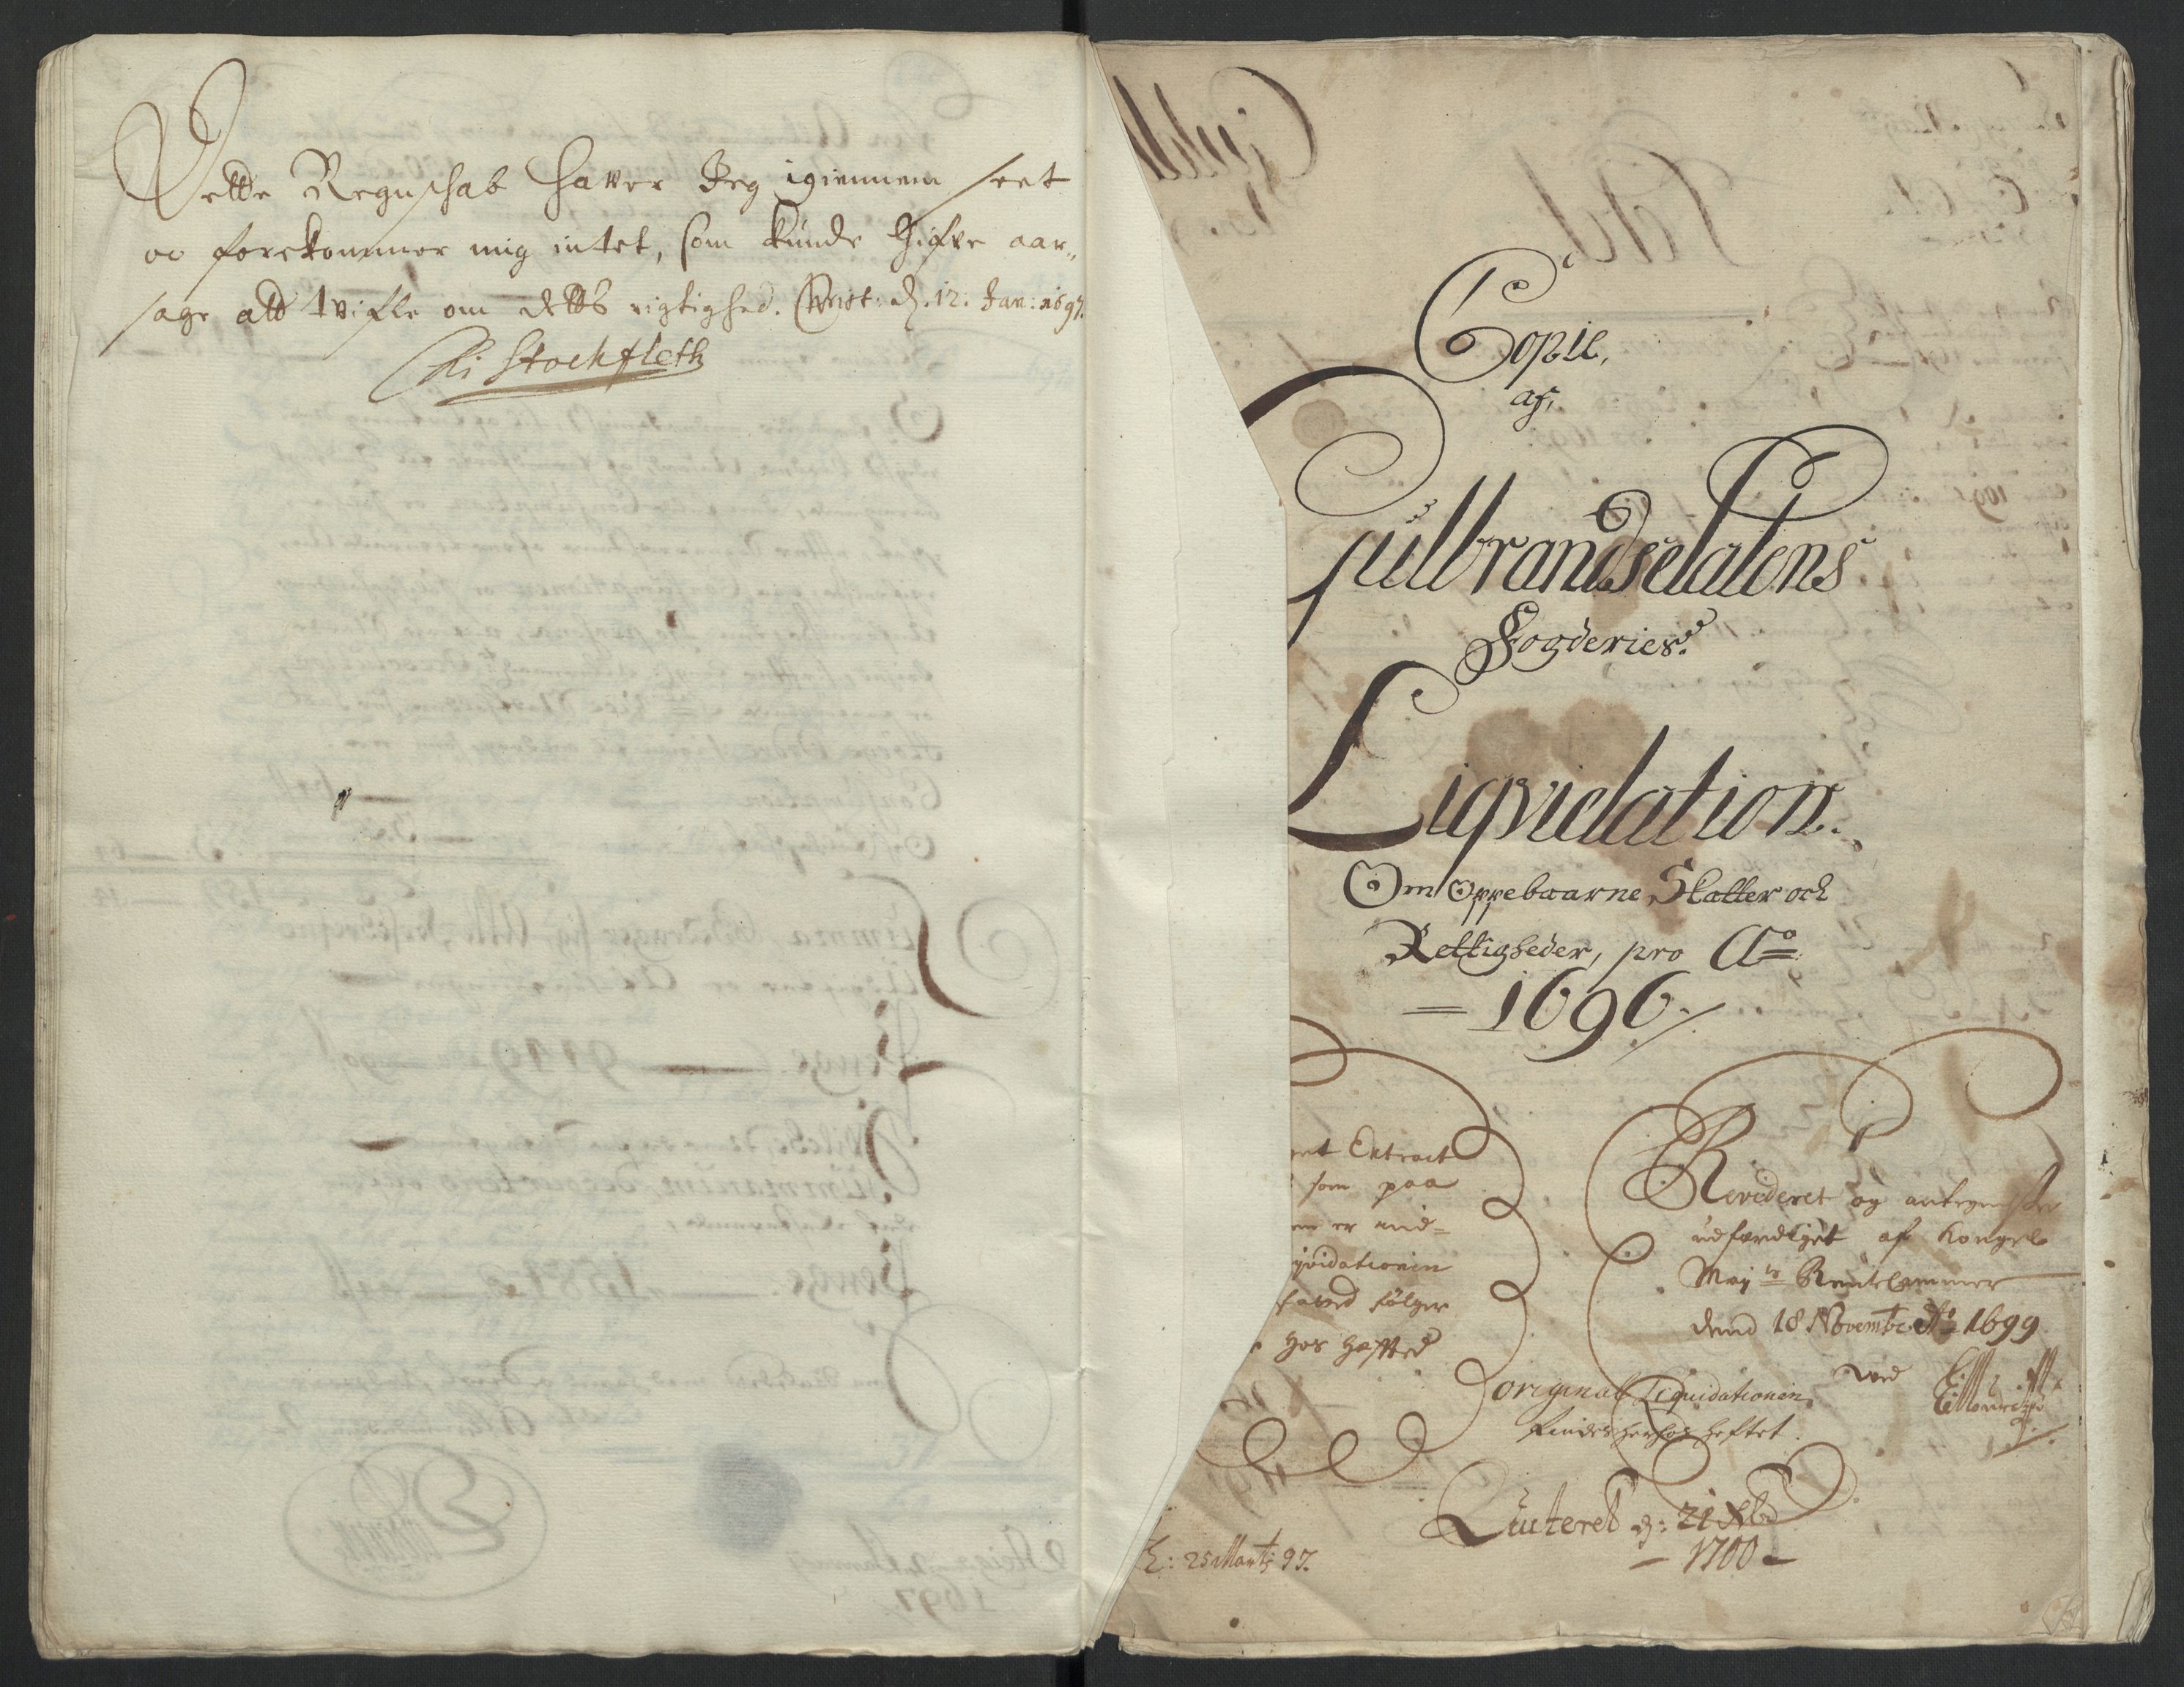 Dette Regnschab hawer Jeg igiennem seet
oc forekommer mig intet, som kunde Gifve aar„
sage att tvifle om dettes rigtighed. Christ: d. 12: Jan: 1697.
Stockfleth
Copie,
af,
Gulbrandsdalens
Fogderies
Liqvidation.
Om Oppebaarne Skatter och
Rettigheder, pro Ao
1696.
Extract
som paa
er ind=
qvidationen
følger
hos hæfted
Revideret og antegnelser
udfærdiget af Kongel
Maytz Rentekammer
dend 18 Novembr Ao 1699
ved
original Liquidationen
findes herhos heftet.
Qvitteret d: 21
1700
25 Marti 97.